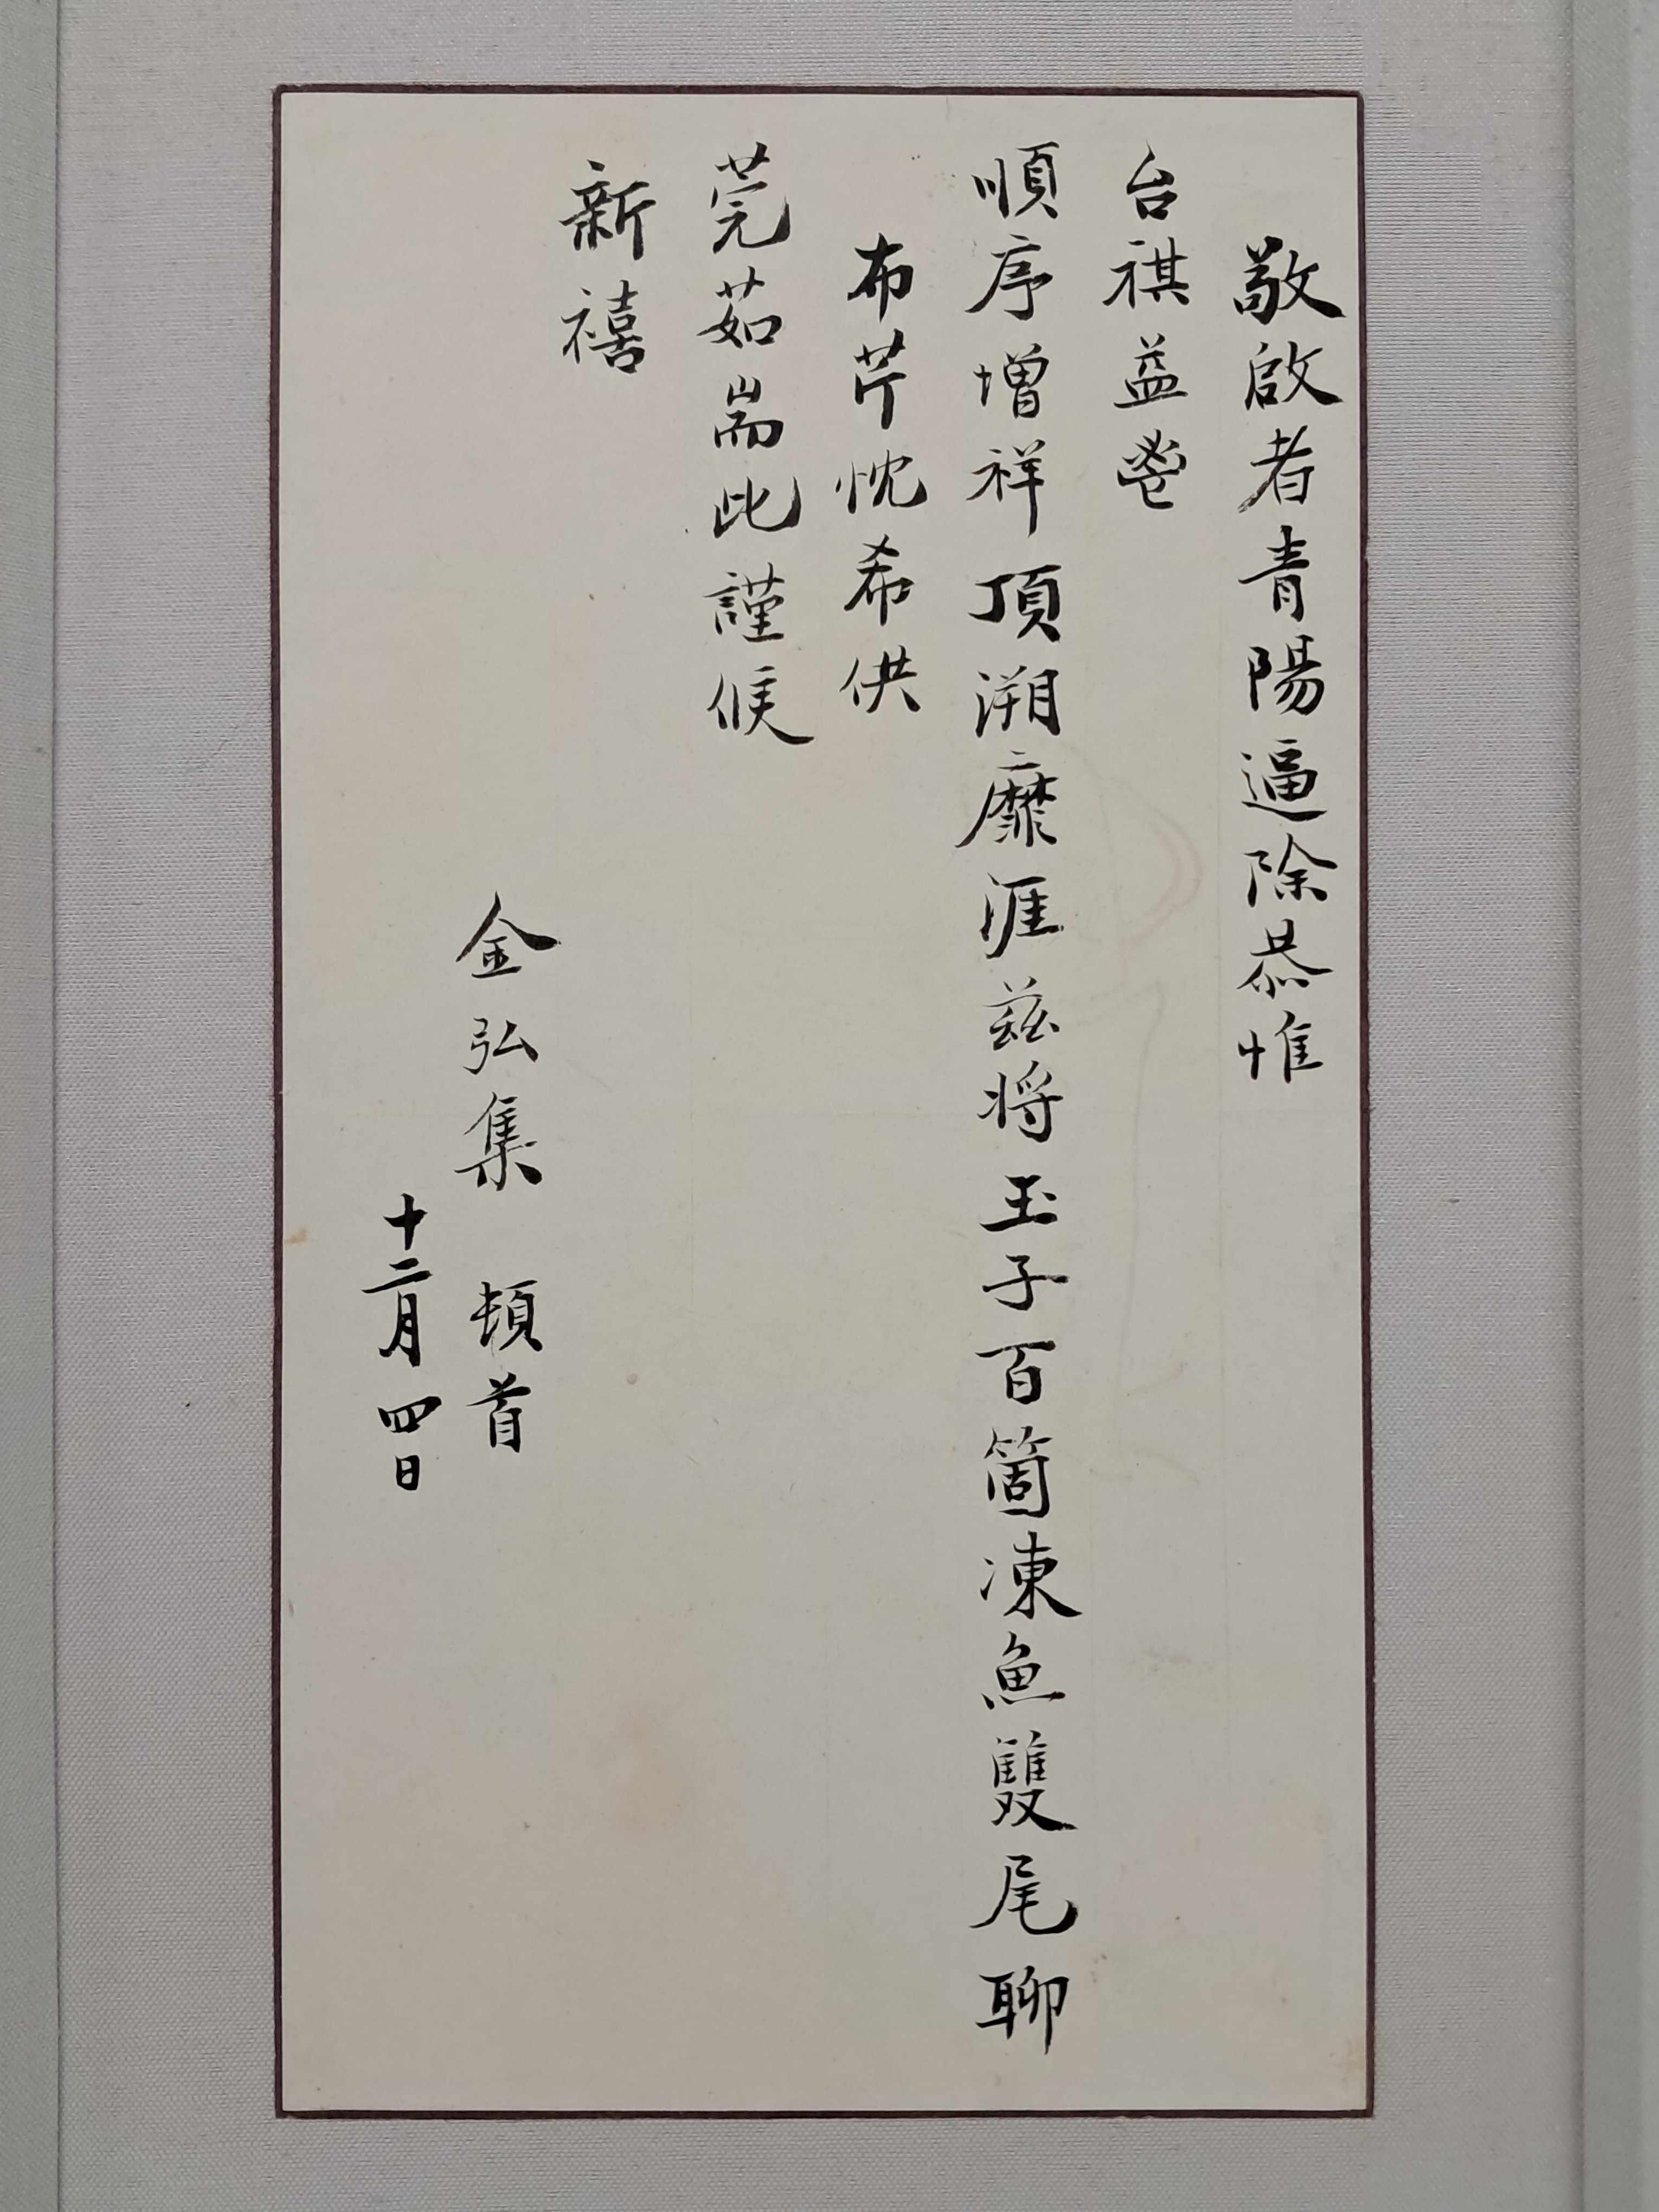 敬啟者青陽逼除恭惟
台祺益鬯
順序增祥頂溯靡涯茲將玉子百箇凍魚雙尾聊
布芹忱希供
莞茹耑此謹候
新禧
金弘集 頓首
十二月四日